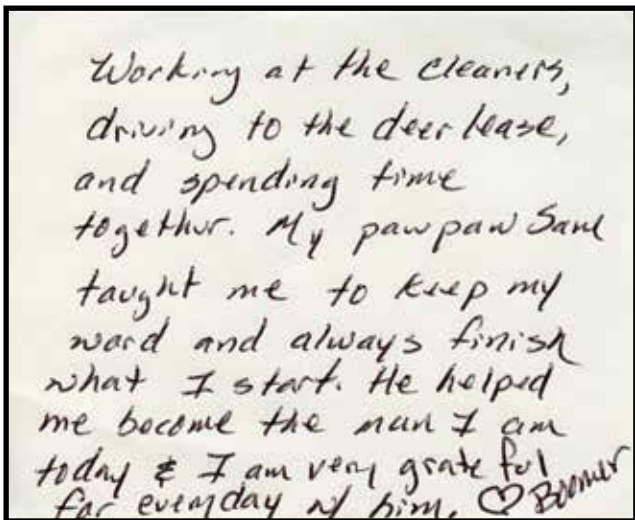 Working at the cleaners,
driving to the deer lease,
and spending time
together. My pawpaw
taught me to keep my
word and always finish
what I start. He helped
me become the man I am
today & I am very grateful
for everyday w/ him. ♡ Boomer